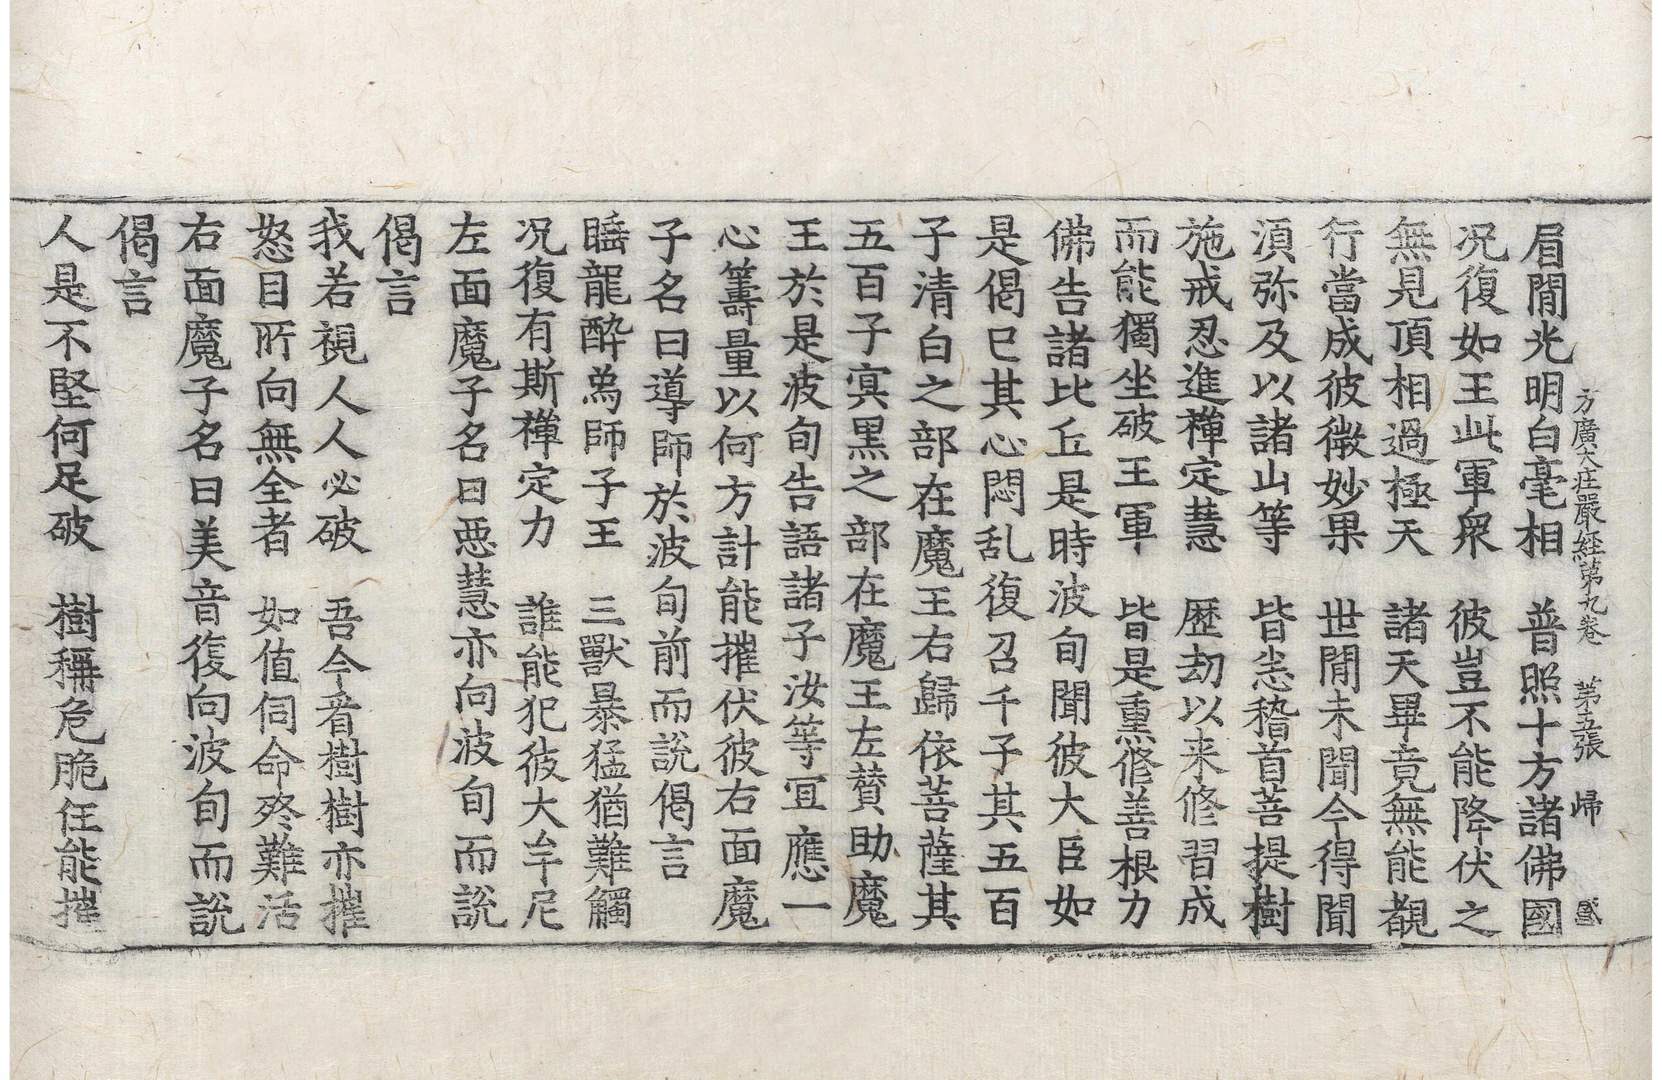 方廣大庄嚴経第九卷 第五張 㱕
眉間光明白毫相 普照十方諸佛國
况復如王此軍衆 彼豈不能降伏之
無見頂相過極天 諸天畢竟無能覩
行當成彼微妙果 世間未聞今得聞
湏弥及以諸山等 皆悉稽首菩提樹
施戒忍進禪定慧 歷劫以来修習成
而能獨坐破王軍 皆是熏修善根力
佛告諸比丘是時波旬聞彼大臣如
是偈已其心悶乱復召千子其五百
子清白之部在魔王右歸依菩薩其
五百子㝠黒之部在魔王左賛助魔
王於是波旬告語諸子汝等冝應一
心籌量以何方計能摧伏彼右面魔
子名曰導師於波旬前而說偈言
睡龍酔為師子王 三獸暴猛猶難觸
况復有斯禪定力 誰能犯彼大牟尼
左面魔子名曰惡慧亦向波旬而說
偈言
我若視人人必破 吾今看樹樹亦摧
怒目所向無全者 如值伺命終難活
右面魔子名曰美音復向波旬而說
偈言
人是不堅何足破 樹稱危脆任能摧